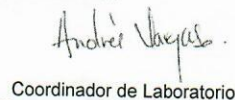 Andrés Vargas.
Coordinador de Laboratorio